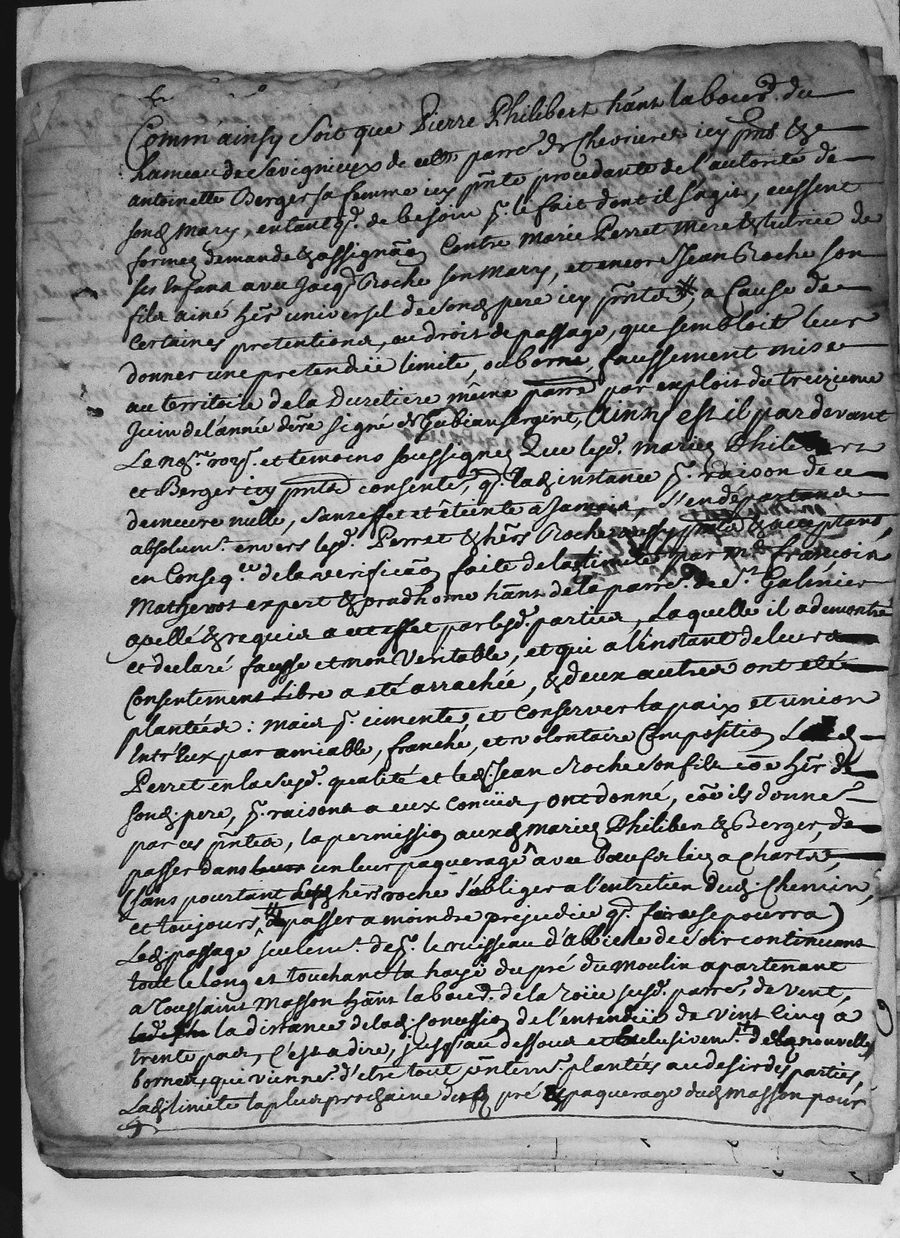 Comm'ainsy soit que Pierre Philibert hãnt laboud. du
hameau de Savignieux de cette parr. de Chevrieres icy pñt &
antoinette Berger sa femme icy pñte procedante de l'autorité de
sond. Mary, en tant q. de besoin p. le fait dont il s'agit, eussent
formez demande & assignãõ Contre Marie Perret mere & tutrice de
ses Enfans avec Jacq. Roche son Mary, et encore Jean Roche son
fils ainé her. universel de sond. pere icy pñte #, a Cause de
certaines pretentions, au droit de passage, que sembloit leur
donner une pretendüe limite, ou borne, faussement mise
au territoire de la Duretiere même parr. par exploit du treizieme
Juin de l'année dre. signé de Gubian sergent, Ainsy est il par devant
Le nore. roy. et temoins soussignez Que lesd. mariez Philibert
et Berger icy pñts consente, q. lad. instance p. raison de ce
demeure nulle, sans effet et éteinte a Jamais, s'en départans
absolum. envers lesd. Perret & hers Roche aussy pñts & acceptans,
en Conseq.ce de la verificãõ faite de la limite par me. françois
Mathevot expert & prudhome hãnt de la parr. de St. Galmier
apellé & requis a cet effet par lesd. parties, Laquelle il a demontré
et declaré fausse et non Veritable, et qui a l'instant de leurs
Consentement Libre a eté arrachée, & deux autres ont eté
plantées: mais p. cimenté, et conserver la paix et union
Entr'Eux par amiable, franche, et volontaire Composition Lad.
Perret en la susd. qualité et led. Jean Roche son fils cõe her. de
sond. pere, p. raisons a eux connües, ont donné, cõe ils donne
par ces pñtes, la permission auxd. mariez Philibert & Berger, de
passer dans un leur paquerage avec bœufs liez a Charte,
(sans pourtant lesd. hers roche s'obliger a l'entretien dud. Chemin,
et toujours a passer a moindre prejudice q. faire se pourra)
Led. passage seulem. dep. le ruisseau d'abziene de Soir continuant
tout le long et touchant la haye du pré du Moulin apartenant
a Toussaint Masson hãnt laboud. de la roüe susd. parr. de vent,
la distance de lad. Concession de l'entendüe de vint cinq à
trente pas, c'est a dire, jusqu'au dessous et Exclusivem. de la nouvelle
borne, qui vienne. d'etre tout pñtem. plantées au desir des parties,
Lad. limite la plus prochaine du pré & paquerage dud. Masson pour